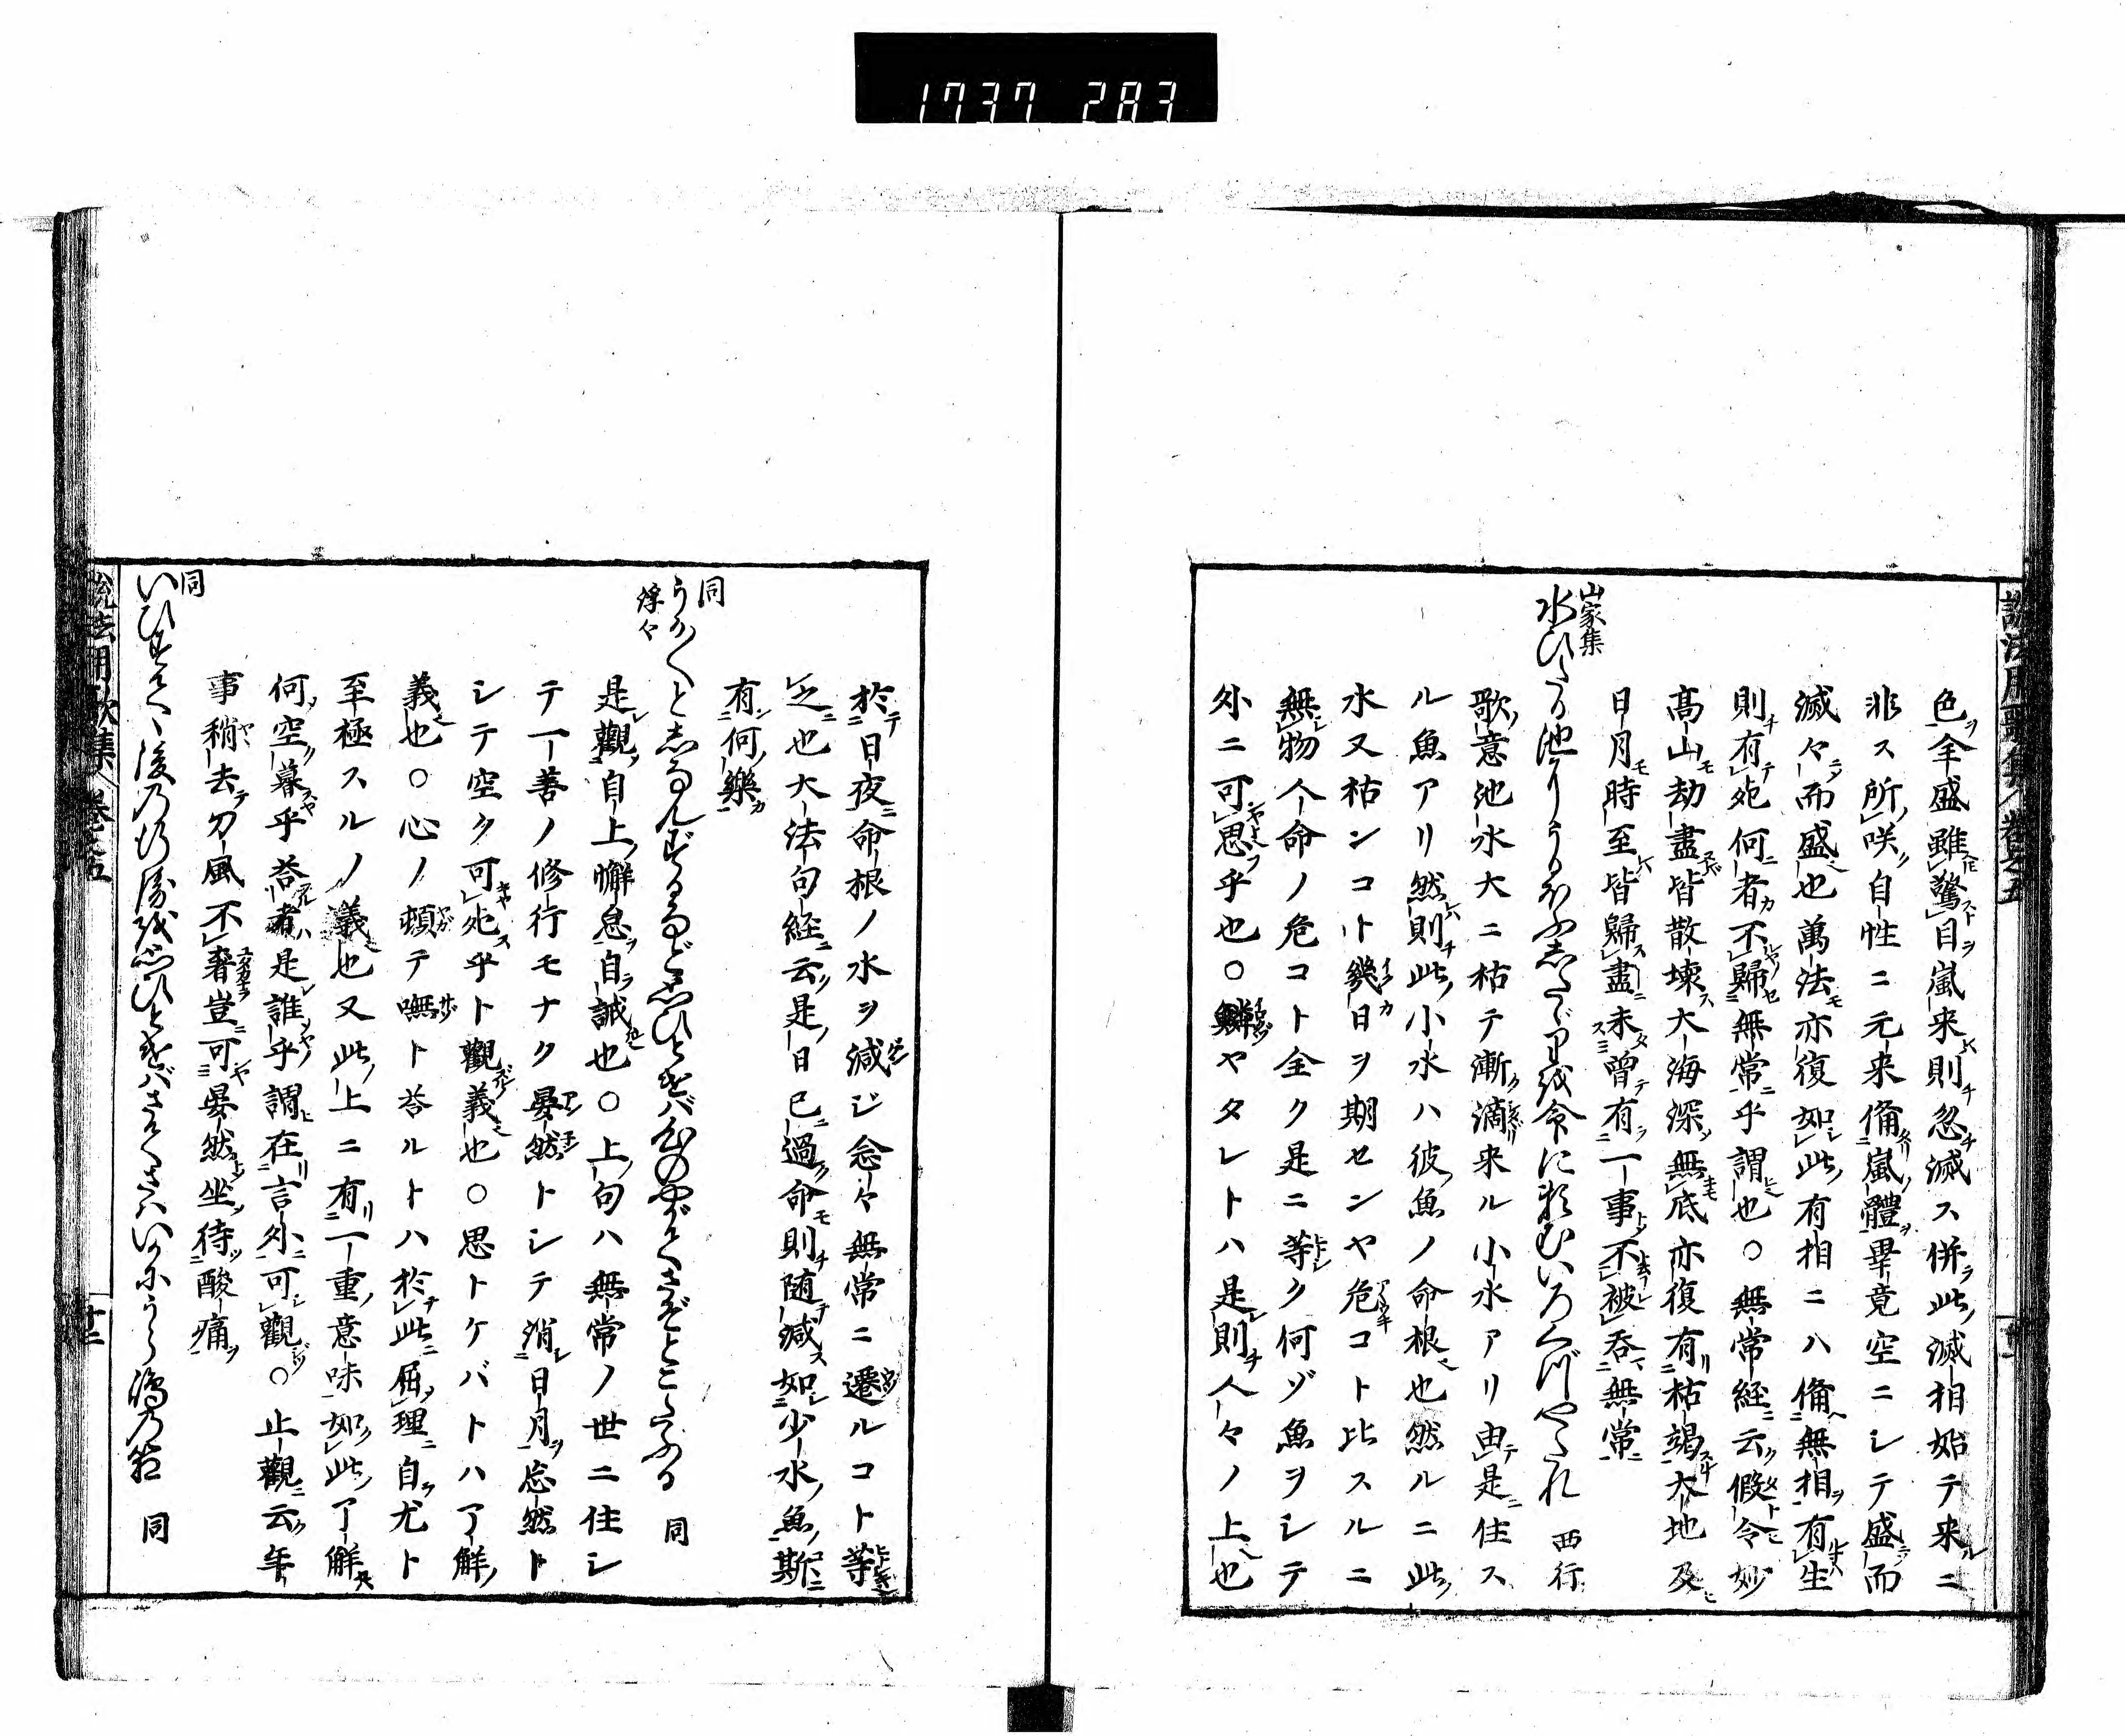 1737 283
説法用歌集 巻之五
色ヲ全盛雖驚目ヲ嵐来則忽滅ス併此滅相始テ来ルニ
非ス所咲自性ニ元来備嵐體畢竟空ニシテ盛而
滅々而盛也萬法モ亦復如此有相ニハ備無相有生
則有死何者不歸無常乎謂也○無常経ニ云假令妙
髙山モ劫盡皆散壊ス大海深無底亦復有枯竭大地及
日月モ時至皆歸盡未曽有一事不被呑無常
山家集
水ひたる池にうるほふしたゝりを命に頼むいろくづやたれ 西行
歌意池水大ニ枯テ漸滴来ル小水アリ由是ニ住ス
ル魚アリ然則此小水ハ彼魚ノ命根也然ルニ此
水又枯ンコト幾日ヲ期センヤ危コト比スルニ
無物人命ノ危コト全ク是ニ等ク何ゾ魚ヲシテ
外ニ可思乎也○鱗ヤタレトハ是則人々ノ上也
於日夜ニ命根ノ水ヲ減ジ念々無常ニ遷ルコト等
之也大法句経ニ云是日已過命則随減如少水魚斯
有何樂
同
うか〳〵としなんずるなど思ひとけば心のやがてさぞとこたふる 同
浮々
是觀自上懈怠自誡也○上句ハ無常ノ世ニ住シ
テ一善ノ修行モナク晏然トシテ消日月ヲ忘然ト
シテ空ク可死乎ト觀義也○思トケバトハ了解ノ
義也○心ノ頓テ嘸ト答ルトハ於此屈理自尤ト
至極スルノ義也又此上ニ有一重意味如此了解
何空暮乎答者是誰乎謂在言外可觀○止觀ニ云年
事稍去刀風不奢豈可晏然坐待酸痛
同
いひすてゝ後の行衛を思ひとけばさてさはいかにうら嶋の筥 同
説法用歌集 巻之五 十二